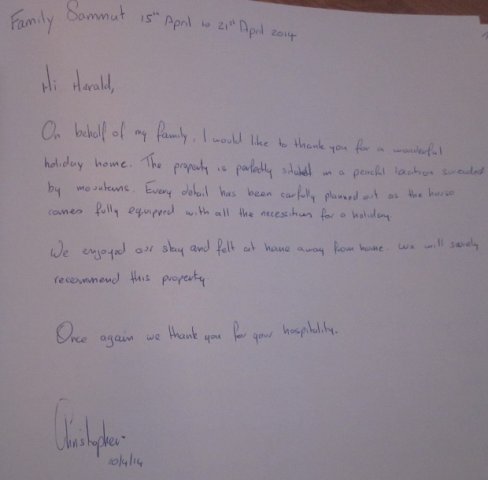 Family Sammut 15th April to 21st April 2014
Hi Harald,
On behalf of my family, I would like to thank you for a wonderful
holiday home. The property is perfectly in a peacful location surounded
by mountains. Every detail has been carfully planned out as the house
comes fully equipped with all the necessities for a holiday
We enjoyed our stay and felt at home away from home. We will surely
recommend this property
Once again we thank you for your hospitality.
Christopher
20/4/14